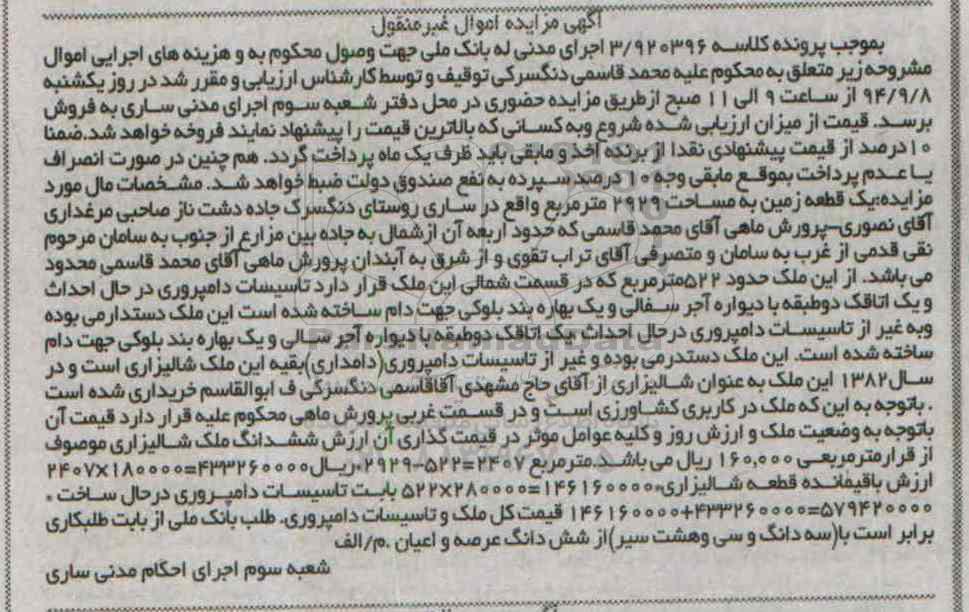 آگهی مزایده اموال غیرمنقول
بموجب پرونده کلاسه ۳/۹۲۰۳۹۶ اجرای مدنی له بانک ملی جهت وصول محکوم به و هزینه های اجرایی اموال
مشروحه زیر متعلق به محکوم علیه محمد قاسمی دنگسرکی توقیف و توسط کارشناس ارزیابی و مقرر شد در روز یکشنبه
۹۴/۹/۸ از ساعت ۹ الی ۱۱ صبح ازطریق مزایده حضوری در محل دفتر شعبه سوم اجرای مدنی ساری به فروش
برسد. قیمت از میزان ارزیابی شده شروع وبه کسانی که بالاترین قیمت را پیشنهاد نمایند فروخه خواهد شد.ضمنا
۱۰درصد از قیمت پیشنهادی نقدا از برنده اخذ و مابقی باید ظرف یک ماه پرداخت گردد. هم چنین در صورت انصراف
یا عدم پرداخت بموقع مابقی وجه ۱۰ درصد سپرده به نفع صندوق دولت ضبط خواهد شد. مشخصات مال مورد
مزایده:یک قطعه زمین به مساحت ۲۹۲۹ مترمربع واقع در ساری روستای دنگسرک جاده دشت ناز صاحبی مرغداری
آقای نصوری-پرورش ماهی آقای محمد قاسمی که حدود اربعه آن ازشمال به جاده بین مزارع از جنوب به سامان مرحوم
نقی قدمی از غرب به سامان و متصرفی آقای تراب تقوی و از شرق به آبندان پرورش ماهی آقای محمد قاسمی محدود
می باشد. از این ملک حدود ۵۲۲مترمربع که در قسمت شمالی این ملک قرار دارد تاسیسات دامپروری در حال احداث
و یک اتاقک دوطبقه با دیواره آجر سفالی و یک بهاره بند بلوکی جهت دام ساخته شده است این ملک دستدارمی بوده
وبه غیر از تاسیسات دامپروری درحال احداث یک اتاقک دوطبقه با دیواره آجر سالی و یک بهاره بند بلوکی جهت دام
ساخته شده است. این ملک دستدرمی بوده و غیر از تاسیسات دامپروری(دامداری)بقیه این ملک شالیزاری است و در
سال۱۳۸۲ این ملک به عنوان شالیزاری از آقای حاج مشهدی آقاقاسمی دنگسرکی ف ابوالقاسم خریداری شده است
. باتوجه به این که ملک در کاربری کشاورزی است و در قسمت غربی پرورش ماهی محکوم علیه قرار دارد قیمت آن
باتوجه به وضعیت ملک و ارزش روز و کلیه عوامل موثر در قیمت گذاری آن ارزش ششدانگ ملک شالیزاری موصوف
از قرارمترمربعی ۱۶۰,۰۰۰ ریال می باشد.مترمربع ۲۴۰۷=۵۲۲-۲۹۲۹.ریال۴۳۳۲۶۰۰۰۰=۲۴۰۷×۱۸۰۰۰۰
ارزش باقیمانده قطعه شالیزاری.۱۴۶۱۶۰۰۰۰=۵۲۲×۲۸۰۰۰۰ بابت تاسیسات دامپروری درحال ساخت .
۵۷۹۴۲۰۰۰۰=۴۳۳۲۶۰۰۰۰+۱۴۶۱۶۰۰۰۰ قیمت کل ملک و تاسیسات دامپروری. طلب بانک ملی از بابت طلبکاری
برابر است با(سه دانگ و سی وهشت سیر)از شش دانگ عرصه و اعیان .م/الف
شعبه سوم اجرای احکام مدنی ساری